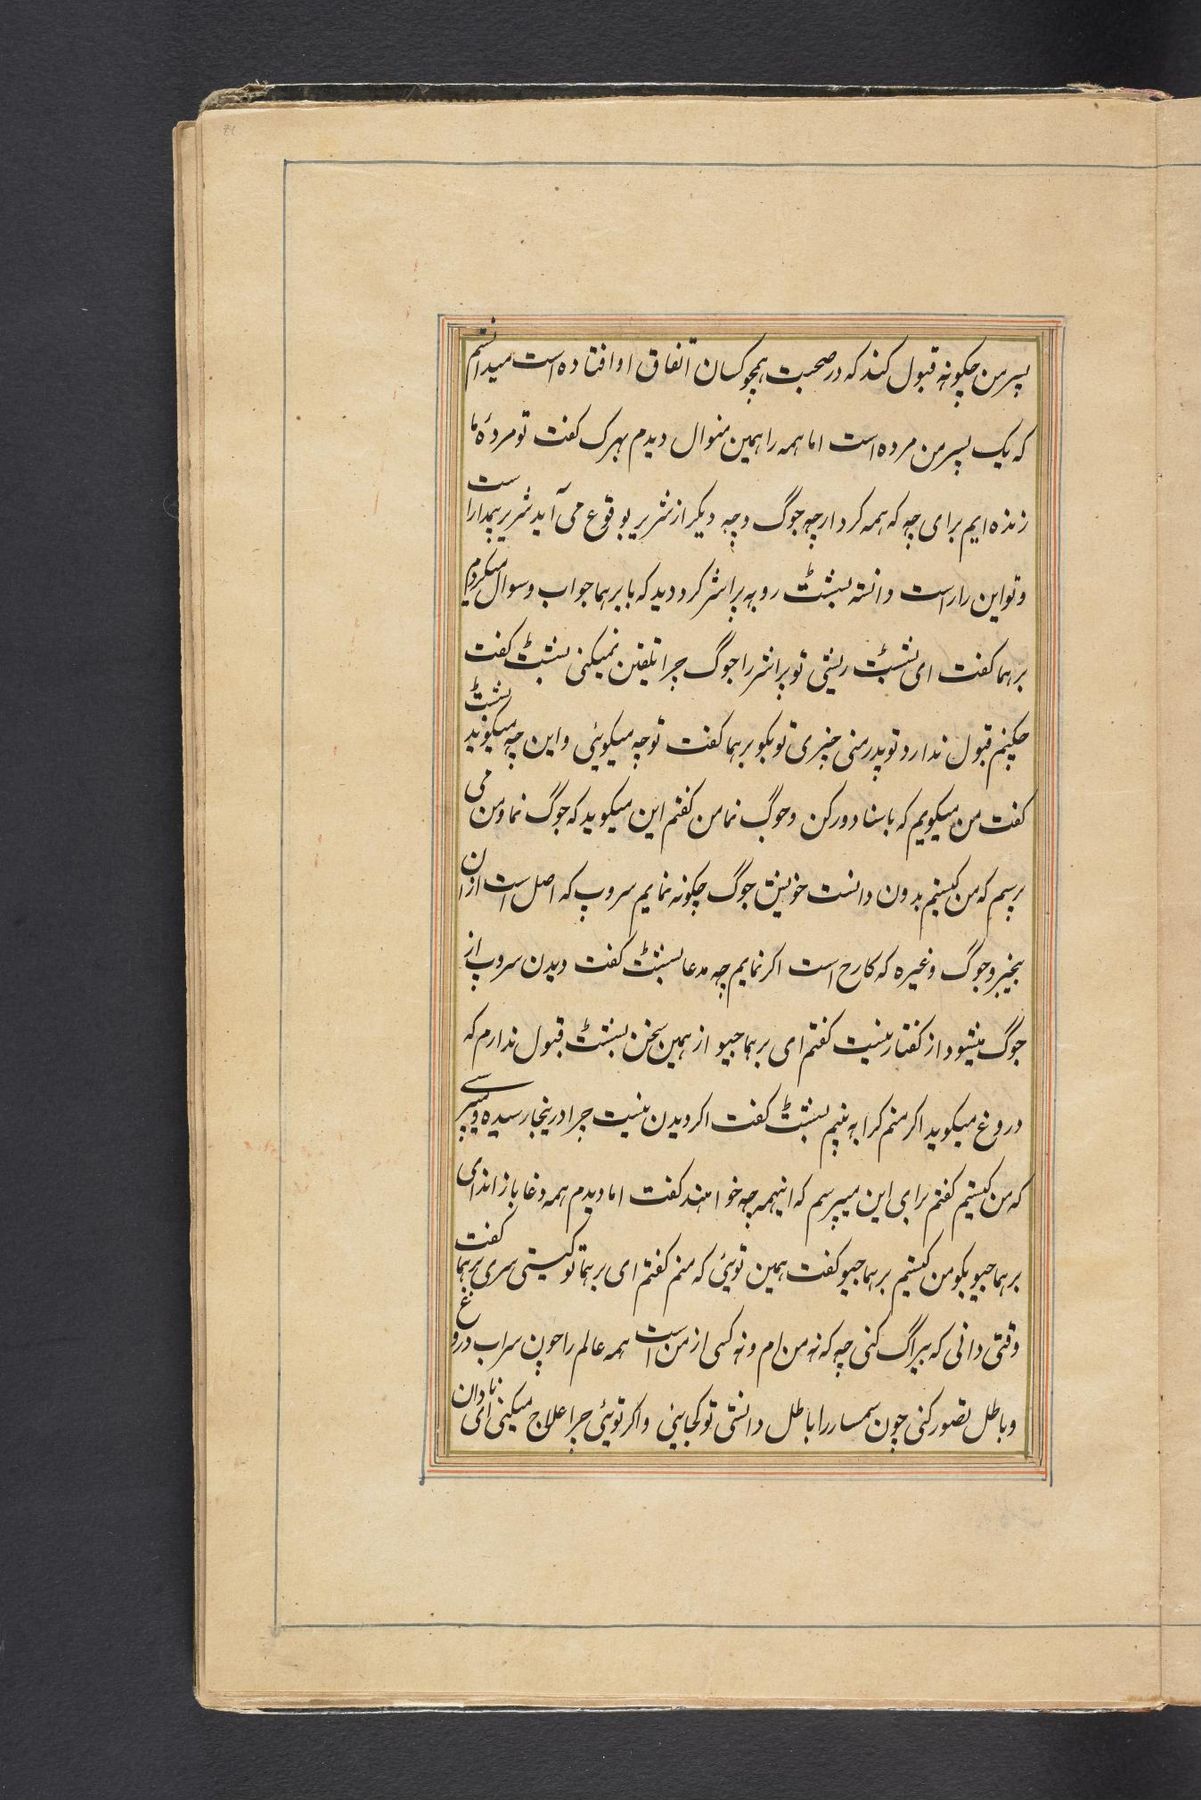 21
پسر من چکونه قبول کند که در صحبت همچو کسان اتفاق او افتاده است میدانستم
که یک پسر من مرده است اما همه را همین منوال دیدم بهرک کفت تو مردۀ ما
زنده ایم برای چه که همه کردار چه جوگ و چه دیکر از شریر بوقوع می آید شریر بیمدار است
و تو این را راست دانسته بسشٹ رو به پراشر کرد دید که با برهما جواب و سوال میکردم
برهما کفت ای بسشٹ رشی تو پراشر را جوگ چرا تلقین نمیکنی بسشٹ کفت
چکنم قبول ندارد تو پدر منی چیزی تو بکو برهما کفت تو چه میکوئی و این چه میکوید بسشٹ
کفت من میکویم که باسنا دور کن و جوگ نما من کفتم این میکوید که جوگ نما و من می
پرسم که من کیستم بدون دانست خویش جوگ چکونه نمایم سروپ که اصل است از ان
بیخبر و جوگ و غیره که کارج است اکر نمایم چه مدعا بسشٹ کفت دیدن سروپ از
جوگ میشود از کفتار نیست کفتم ای برهما جیو از همین سخن بسشٹ قبول ندارم که
دروغ میکوید اکر منم کرا به بینم بسشٹ کفت اکر دیدن نیست چرا در ینجا رسیده و میپرسی
که من کیستم کفتم برای این میپرسم که اینهمه چه خواهند کفت اما دیدم همه دغا باز اند ای
برهما جیو بکو من کیستم برهما جیو کفت همین توئی که منم کفتم ای برهما تو کیستی سری برهما کفت
وقتی دانی که بیراگ کنی چه که نه من ام و نه کسی از من است همه عالم را چون سراب دروغ
و باطل تصور کنی چون سمسار را باطل دانستی تو کجایی و اکر توئی چرا علاج میکنی ای نادان